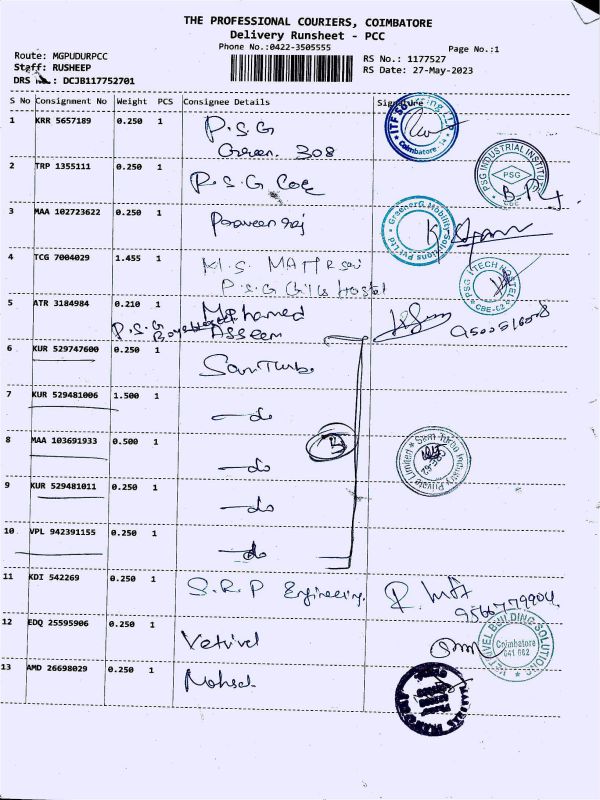 THE PROFESSIONAL COURIERS, COIMBATORE
Delivery Runsheet - PCC
Phone No.:0422-3505555
Page No.:1
Route: MGPUDURPCC
Staff: RUSHEEP
DRS No.: DCJB117752701
RS No.: 1177527
RS Date: 27-May-2023
S No Consignment No Weight PCS Consignee Details Signature
1 KRR 5657189 0.250 1 P.S.G
Green. 308
ITF Coimbatore
2 TRP 1355111 0.250 1 P.S.G
PSG INDUSTRIAL INSTITUTE
PSG
3 MAA 102723622 0.250 1 Praveen raj
Greener Mobility Solutions Pvt Ltd
4 TCG 7004029 1.455 1 M.S.
P.S.G Girls Hostel
PSG ITECH HOSTEL
CBE-62
5 ATR 3184984 0.210 1 Mohamed
P.S.G Asseem
6 KUR 529747600 0.250 1
7 KUR 529481006 1.500 1 do
8 MAA 103691933 0.500 1 do
Industry Private Limited
9 KUR 529481011 0.250 1 do
10 VPL 942391155 0.250 1 do
11 KDI 542269 0.250 1 S.R.P Engineering
12 EDQ 25595906 0.250 1 Vetrivel
VETRIVEL BUILDING SOLUTIONS
Coimbatore
641 662
13 AMD 26698029 0.250 1